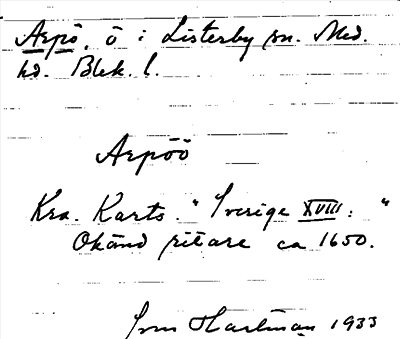 Arpö, ö i Listerby sn. Med.
hd. Blek. l.
Arpöö
Kra. Karts. "Sverige XVIII: "
Okänd ritare ca 1650.
Hartman 1933